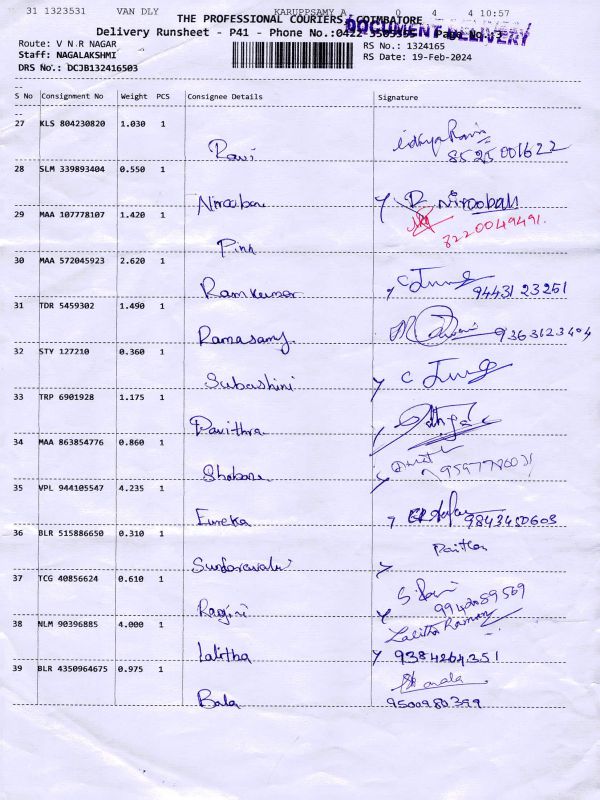 31 1323531 VAN DLY KARUPPSAMY A 0 4 4 10:57
THE PROFESSIONAL COURIERS, COIMBATORE
DOCUMENT DELIVERY
Delivery Runsheet - P41 - Phone No.:0422
Route: V N R NAGAR
RS No.: 1324165
Staff: NAGALAKSHMI
RS Date: 19-Feb-2024
DRS No.: DCJB132416503
S No Consignment No Weight PCS Consignee Details Signature
27 KLS 804230820 1.030 1
Ravi
8525001622
28 SLM 339893404 0.550 1
Niroobana R Niroobah
29 MAA 107778107 1.420 1
8220049491
Pink
30 MAA 572045923 2.620 1
Ramkumar 94431 23251
31 TDR 5459302 1.490 1
Ramasamy 9363123404
32 STY 127210 0.360 1
Subashini
33 TRP 6901928 1.175 1
Pavithra
34 MAA 863854776 0.860 1
Shobana
35 VPL 944105547 4.235 1
Eureka 9843450603
36 BLR 515886650 0.310 1
37 TCG 40856624 0.610 1
Ragini
38 NLM 90396885 4.000 1
Lalitha Raman
Lalitha 9384264351
39 BLR 4350964675 0.975 1
Bala 9500980399